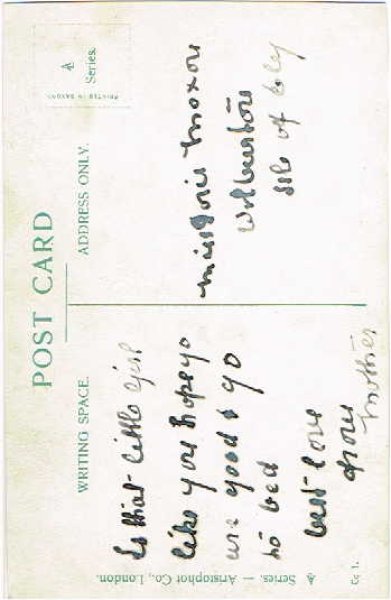 POST CARD
WRITING SPACE.
ADDRESS ONLY.
A
Series.
PRINTED IN SAXONY
Is that little girl
like you hope yo
are good & go
to bed
best love
from
Mother
Miss Doris Moxon
Wilburton
Isle of Ely
A Series. — Aristophot Co., London.
Cc 1.